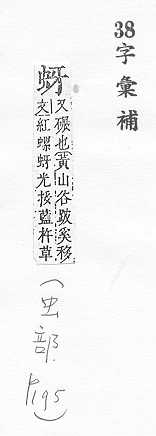 38字彙補
蚜
又碾也黃山谷跋奚移
文紅螺蚜光挼藍杵草
(虫部
P195)